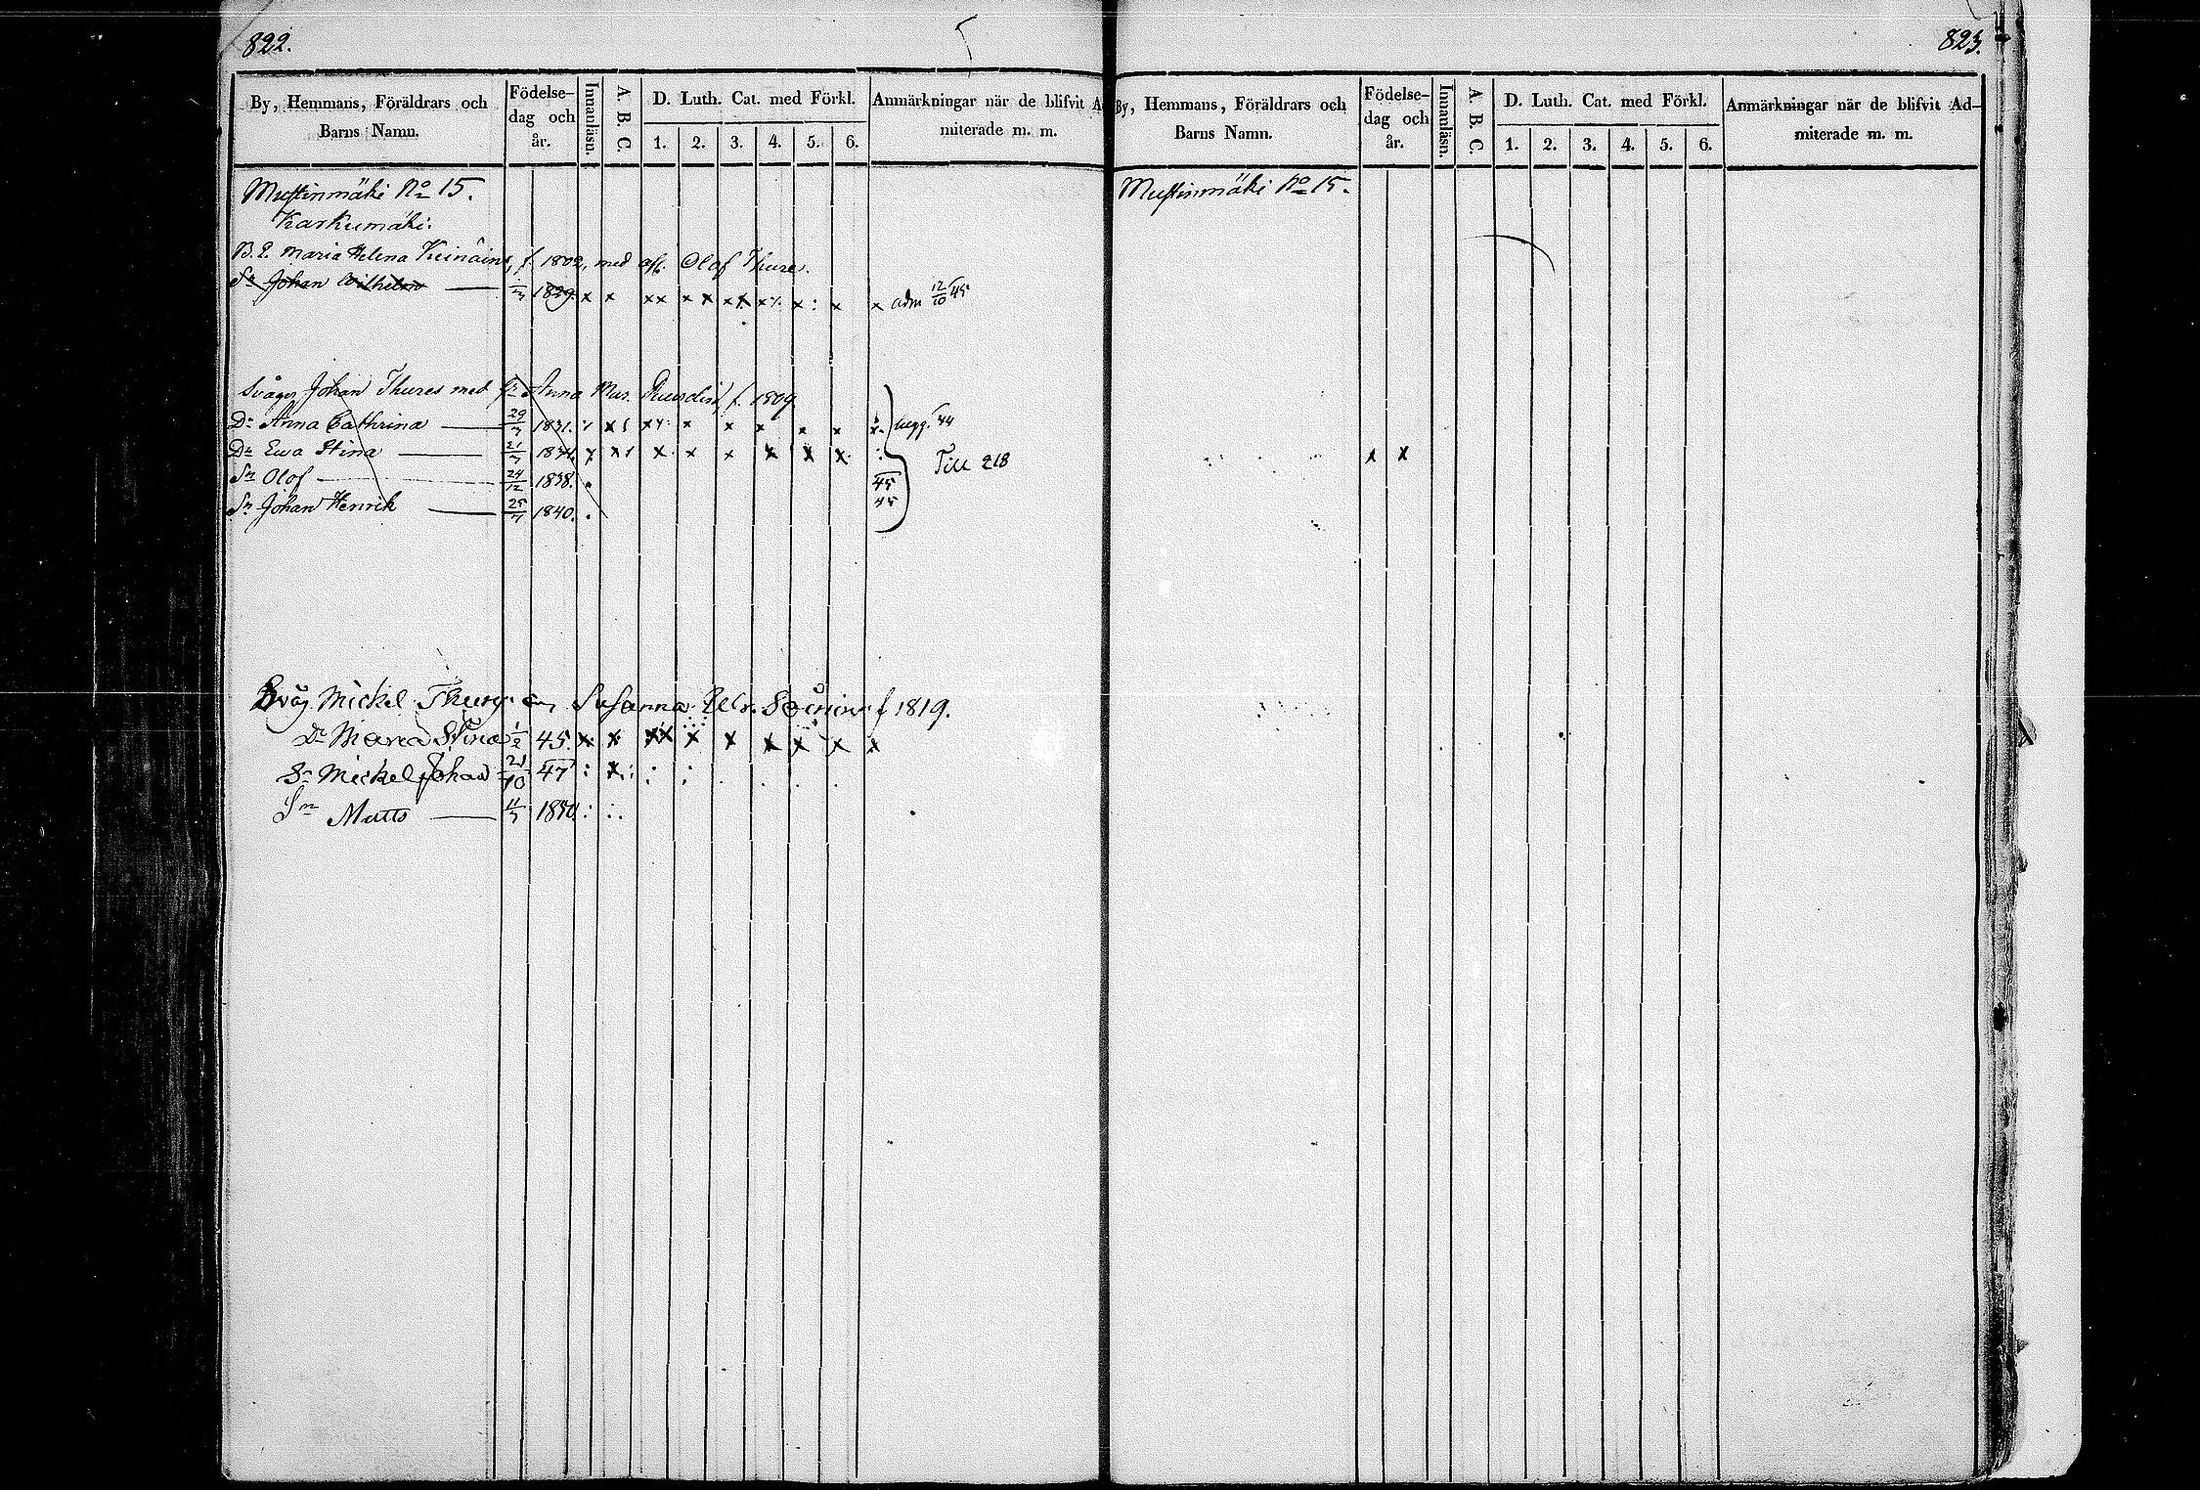 822.
By, Hemmans, Föräldrars och Barns Namn.
Födelse-dag och år.
Innanläsn.
A. B. C.
D. Luth. Cat. med Förkl.
1. 2. 3. 4. 5. 6.
Anmärkningar när de blifvit Admiterade m. m.
Mustinmäki No 15.
Karkumäki.
B. E. Maria Helena f. 1802, med afl. Olof Thure.
Sn Johan Wilhelm 1829. x x xx x x x x x x x adm 12/10 45
Svåger Johan Thures med Anna Mar. f. 1809
Dr Anna Cathrina 29/7 1831. x x x x x x 44
Dr Ewa Stina 21/7 1834. x x x x x x x Till 218
Sn Olof 24/12 1838. 45
Sn Johan Henrik 25/7 1840. 45
Svåg. Mickel Thure Susanna Ulr. f 1819.
Dr Maria Stina 1/2 45. x x xx x x x x x x
Sn Mickel Johan 21/10 47 : x : :
Sn Matts 1850 :
823.
By, Hemmans, Föräldrars och Barns Namn.
Födelse-dag och år.
Innanläsn.
A. B. C.
D. Luth. Cat. med Förkl.
1. 2. 3. 4. 5. 6.
Anmärkningar när de blifvit Admiterade m. m.
Mustinmäki No 15.
x x